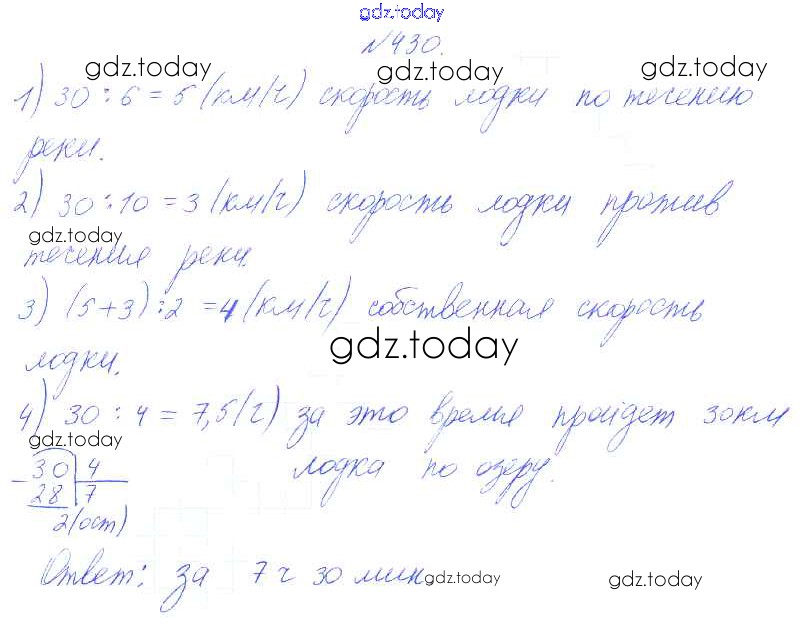 gdz.today
№430.
gdz.today gdz.today gdz.today
1) 30 : 6 = 5 (км/ч) скорость лодки по течению
реки.
2) 30 : 10 = 3 (км/ч) скорость лодки против
gdz.today
течения реки.
3) (5+3) : 2 = 4 (км/ч) собственная скорость
gdz.today
лодки.
4) 30 : 4 = 7,5 (ч) за это время пройдет 30км
gdz.today
лодка по озеру.
- 30 4
28 7
2(ост)
Ответ: за 7 ч 30 мин
gdz.today gdz.today